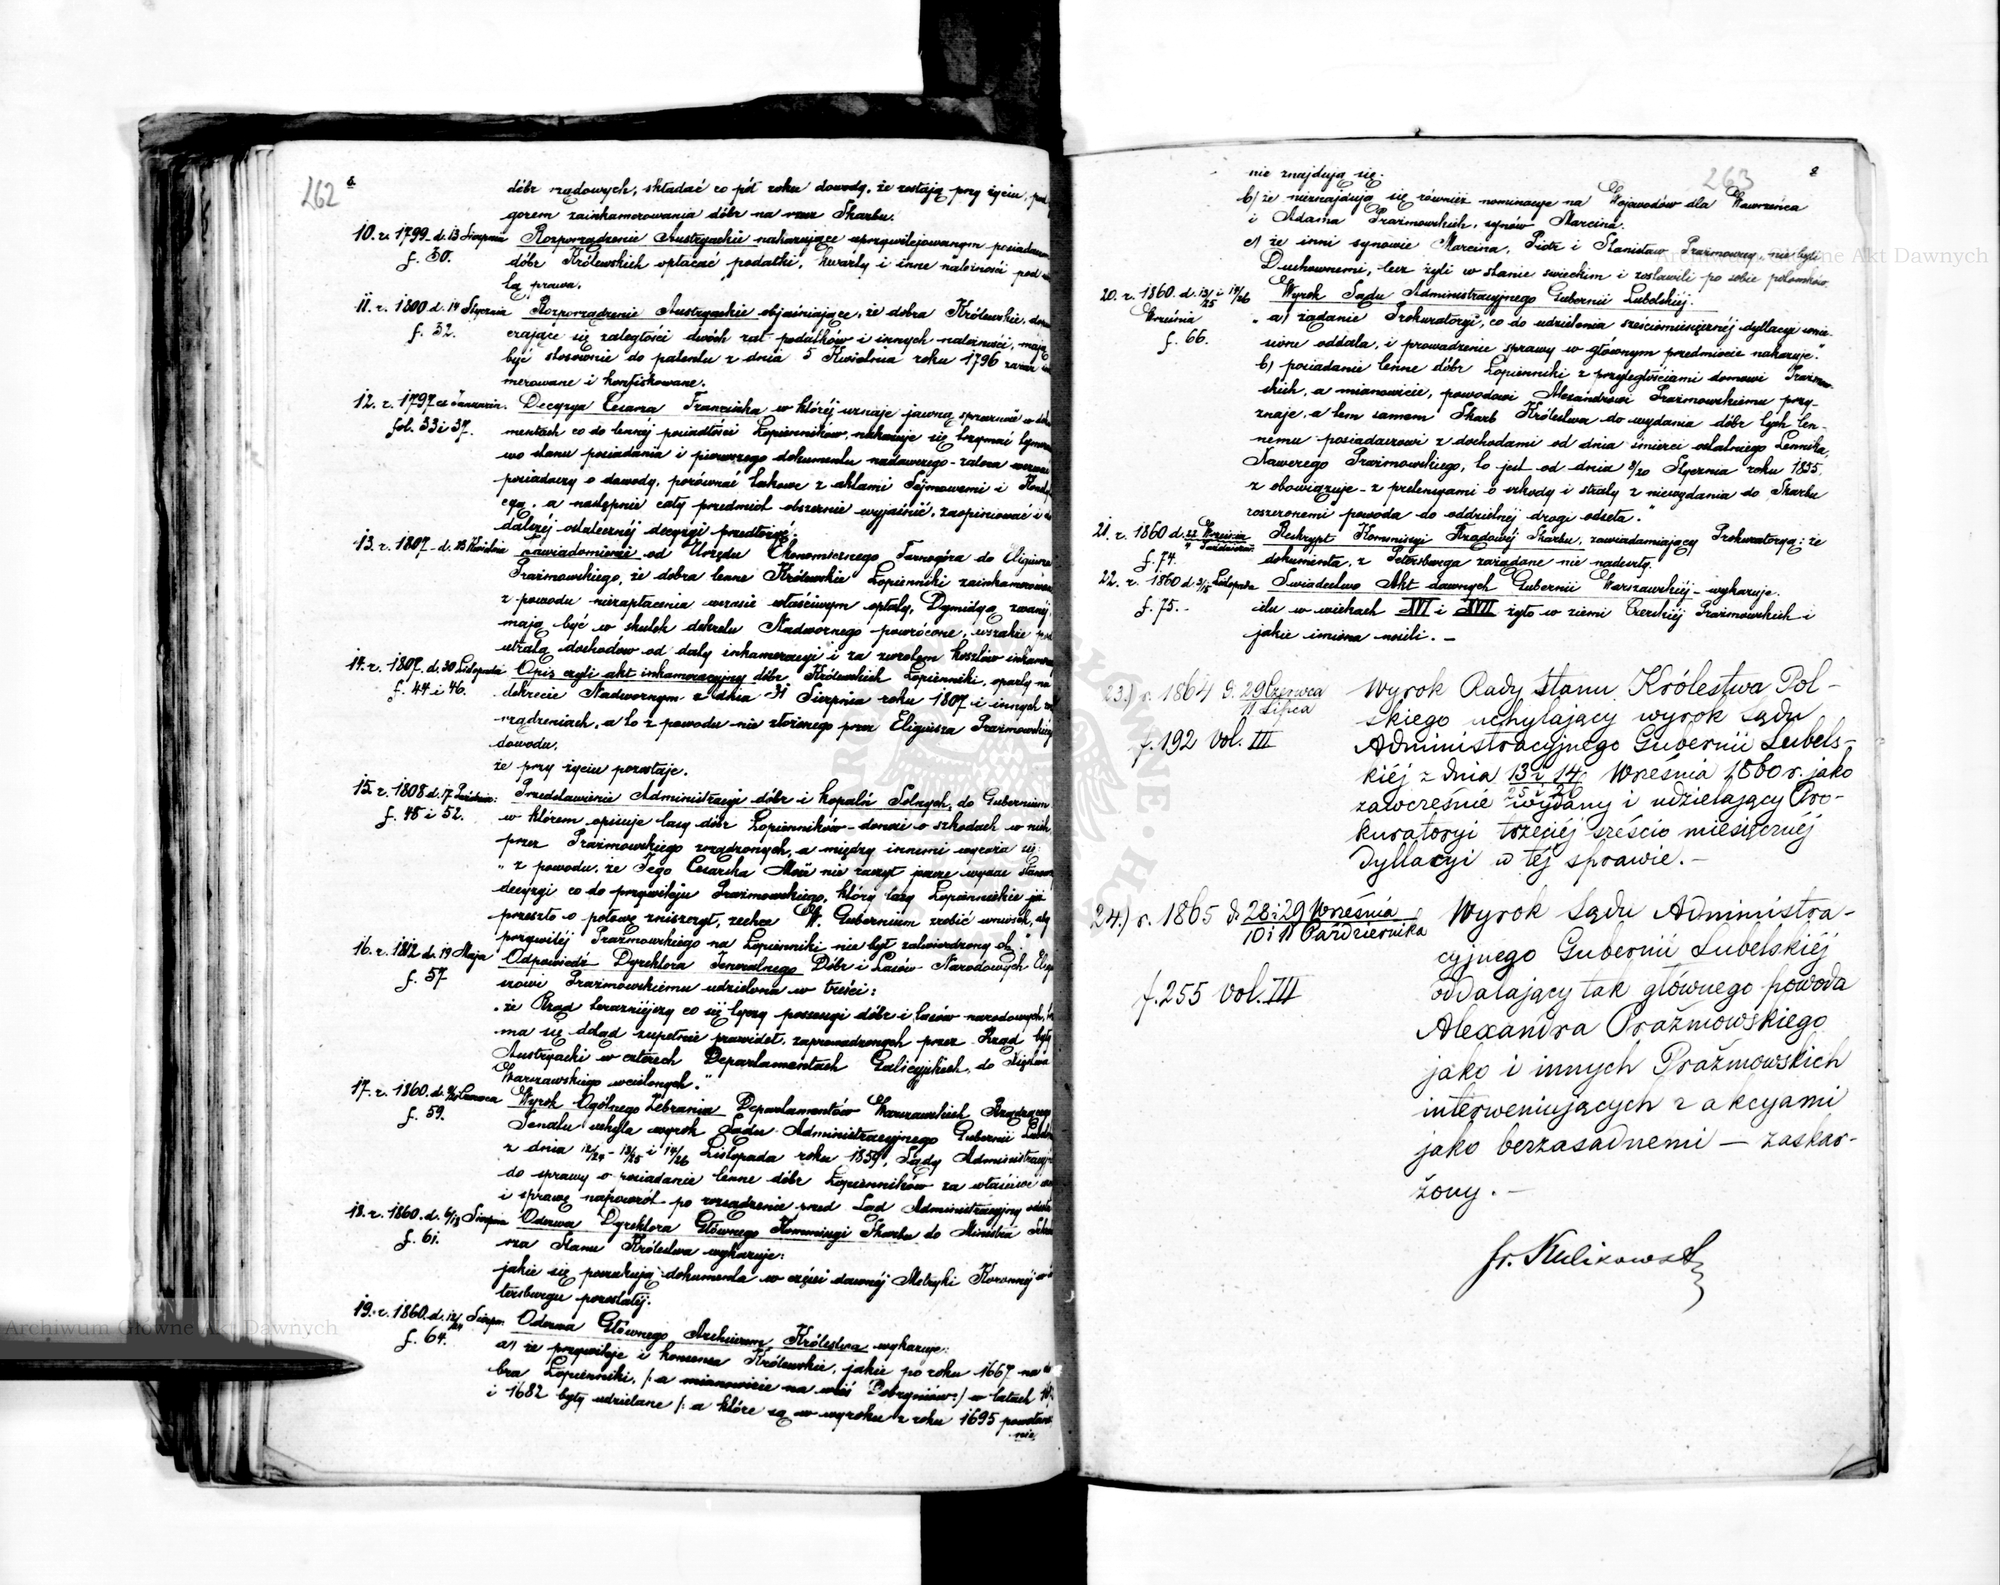 262
8.
dóbr rządowych, składać co pół roku dowody, że zostają przy życiu, pod
gorem zainkamerowania dóbr na rzecz Skarbu.
10. r. 1799 d. 13 Sierpnia Rozporządzenie Austryackie nakazujące uprzywilejowanym posiadaczom
f. 30. dóbr Królewskich opłacać podatki, kwarty i inne należności pod
tą prawa.
11. r. 1800 d. 14 Stycznia Rozporządzenie Austryackie objaśniające, że dobra Królewskie,
f. 32. czające się zaległości dwóch rat podatków i innych należności, mają
być stosownie do patentu z dnia 5 Kwietnia roku 1796 zaraz
merowane i konfiskowane.
12. r. 1797 Januarii. Decyzya Cesarza Franciszka w któréj uznaje jawną sprzeczność w
fol. 33 i 37. mentach co do lennéj posiadłości Łopienników, nakazuje się trzymać
wo stanu posiadania i pierwszego dokumentu nadawczego - zatem
posiadaczy o dowody, porównać takowe z aktami Sejmowemi i
cyą, a następnie cały przedmiot obszernie wyjaśnić, zaopiniować i
dalszéj ostatecznéj decyzyi przedłożyć.
13. r. 1807 d. 23 Kwietnia Zawiadomienie od Urzędu Ekonomicznego Tarnogóra do Eligiusza
Prażmowskiego, że dobra lenne Królewskie Łopienniki zainkamerowane
z powodu niezapłacenia wczasie właściwym opłaty, Dymidyą zwanéj
mają być w skutek dekretu Nadwornego powrócone, wszakże
utratą dochodów od daty inkameracyi i za zwrotem kosztów
14. r. 1807. d. 30 Listopada Opis czyli akt inkameracyjny dóbr Królewskich Łopienniki, oparty na
f. 44 i 46. dekrecie Nadwornym z dnia 31 Sierpnia roku 1807 i innych
rządzeniach, a to z powodu nie złożonego przez Eligiusza Prażmowskiego
dowodu,
że przy życiu pozostaje.
15. r. 1808 d. 17 Paździer: Przedstawienie Administracyi dóbr i kopalń Solnych, do Gubernium
f. 48 i 52. w którem opisuje lasy dóbr Łopienników - donosi o szkodach w nich
przez Prażmowskiego zrządzonych, a między innemi wyraża się:
„z powodu, że Jego Cesarska Mość nie raczył jeszcze wydać stanowczéj
decyzyi co do przywileju Prażmowskiego, który lasy Łopiennickie już
przeszło o połowę zniszczył, zechce W. Gubernium zrobić wniosek, aby
przywiléj Prażmowskiego na Łopienniki nie był zatwierdzony
16. r. 1812 d. 19 Maja Odpowiedź Dyrektora Jeneralnego Dóbr i Lasów Narodowych
f. 57 szowi Prażmowskiemu udzielona w treści:
„że Rząd teraźniéjszy co się tyczy possessyi dóbr i lasów narodowych,
ma się dotąd zupełnie prawideł, zaprowadzonych przez Rząd były
Austryacki w czterech Departamentach Galicyjskich, do Xięstwa
Warszawskiego wcielonych."
17. r. 1860. d. Czerwca Wyrok Ogólnego Zebrania Departamentów Warszawskich Rządzącego
f. 59. Senatu uchyla wyrok Sądu Administracyjnego Gubernii
z dnia 12/24 - 13/25 i 14/26 Listopada roku 1859, Sądy
do sprawy o posiadanie lenne dóbr Łopienników za właściwe
i sprawę napowrót po rozsądzenie przed Sąd Administracyjny
18. r. 1860. d. 6/18 Sierpnia Odezwa Dyrektora Głównego Kommissyi Skarbu do Ministra
f. 61. rza Stanu Królestwa wykazuje:
jakie się poszukują dokumenta w części dawnéj Metryki Koronnéj
tersburgu pozostałéj.
19. r. 1860. d. 12/24 Sierpn. Odezwa Głównego Archiwum Królestwa wykazuje:
f. 64. a) że przywileje i konsensa Królewskie, jakie po roku 1667 na
bra Łopienniki, /: a mianowicie na wieś Dobryniów :/ w latach
i 1682 były udzielane /: a które są w wyroku z roku 1695
nie
263
8
nie znajdują się.
b) że nieznajdują się również nominacye na Wojewodów dla Wawrzeńca
i Adama Prażmowskich, synów Marcina.
c) że inni synowie Marcina, Piotr i Stanisław Prażmowscy, nie byli
Duchownemi, lecz żyli w stanie świeckim i zostawili po sobie potomków.
20. r. 1860. d. 13/25 i 14/26 Wyrok Sądu Administracyjnego Gubernii Lubelskiéj.
Września „a) żądanie Prokuratoryi, co do udzielenia sześciomiesięcznéj dyllacyi
f. 66. sione oddala, i prowadzenie sprawy w głównym przedmiocie nakazuje."
b) posiadanie lenne dóbr Łopienniki z przyległościami domowi Prażmow-
skich, a mianowicie, powodowi Alexandrowi Prażmowskiemu przy-
znaje, a tem samem Skarb Królestwa do wydania dóbr tych len-
nemu posiadaczowi z dochodami od dnia śmierci ostatniego Lennika,
Xawerego Prażmowskiego, to jest od dnia 8/20 Stycznia roku 1835
zobowiązuje - z pretensyami o szkody i straty z niewydania do Skarbu
roszczonemi powoda do oddzielnéj drogi odseła."
21. r. 1860 d. 22 Września Reskrypt Kommissyi Rządowéj Skarbu, zawiadamiający Prokuratoryą: że
f. 74. dokumenta, z Petersburga zażądane nie nadeszły.
22. r. 1860 d. 3/15 Listopada Świadectwo Akt dawnych Gubernii Warszawskiéj - wykazuje.
f. 75. - ilu w wiekach XVI i XVII żyło w ziemi Czerskiéj Prażmowskich i
jakie imiona nosili. -
23.) r. 1864 d. 29 Czerwca / 11 Lipca Wyrok Rady Stanu Królestwa Pol-
skiego uchylający wyrok Sądu
f. 192 vol. III Administracyjnego Gubernii Lubels-
kiéj z dnia 13 i 14 / 25 i 26 Września 1860 r. jako
zawcześnie wydany i udzielający Pro-
kuratoryi trzeciéj sześcio miesięcznéj
dyllacyi w téj sprawie. -
24.) r. 1865 d. 28 i 29 Września / 10 i 11 Października Wyrok Sądu Administra-
cyjnego Gubernii Lubelskiéj
f. 255 vol. III oddalający tak głównego powoda
Alexandra Prażmowskiego
jako i innych Prażmowskich
interweniujących z akcyami
jako bezzasadnemi - zaskar-
żony. -
Fr. Kulikowski
Archiwum Główne Akt Dawnych